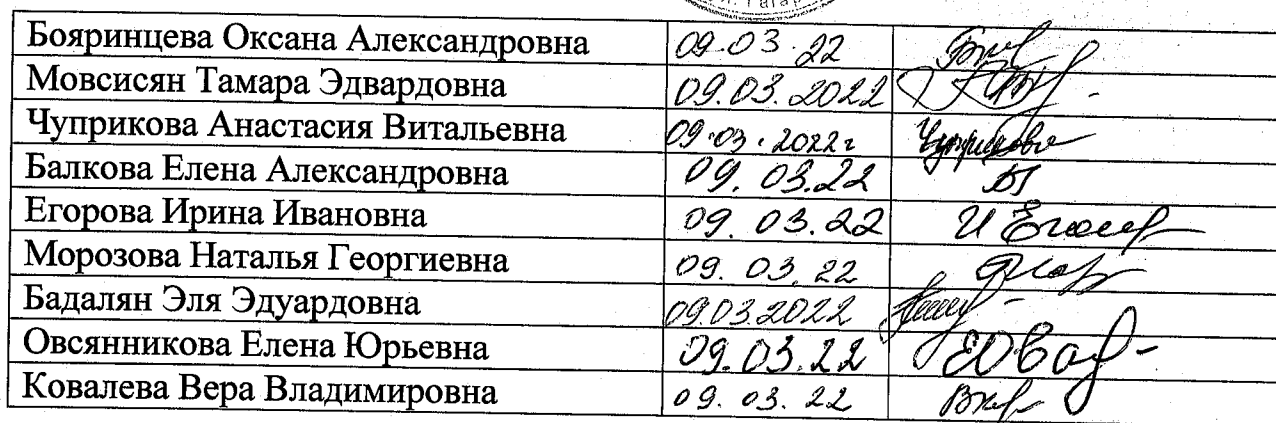 Бояринцева Оксана Александровна 09.03.22
Мовсисян Тамара Эдвардовна 09.03.2022
Чуприкова Анастасия Витальевна 09.03.2022г Чуприкова
Балкова Елена Александровна 09.03.22
Егорова Ирина Ивановна 09.03.22
Морозова Наталья Георгиевна 09.03.22
Бадалян Эля Эдуардовна 09.03.2022
Овсянникова Елена Юрьевна 09.03.22
Ковалева Вера Владимировна 09.03.22